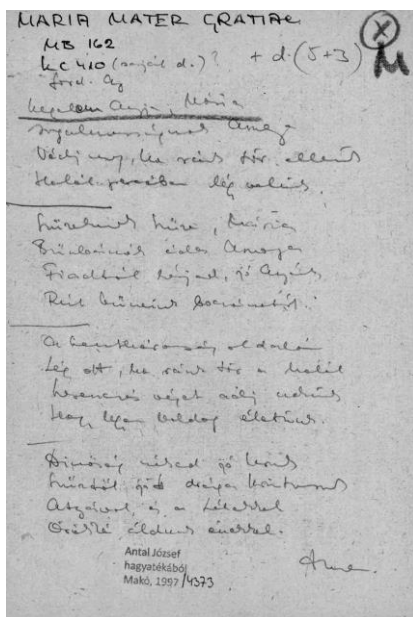 MARIA MATER GRATIAE
MB 162
KC 410 (saját d.)? + d. (5+3) M
ford. Ag
Kegyelem Anyja, Mária
Irgalmasságnak Anyja
Védj meg, ha ránk tör ellens
Halál percében légy velünk.
Szüzeknek Szüze, Mária
Bűnbánók édes Anyja
Fiadtól kérjed, jó Anyánk
A Szentháromság oldalán
Légy ott, ha ránk tör a halál
Szerencsés véget adj nekünk
Hogy legyen boldog életünk.
Dicsőség néked jó
Szűztől
Atyával, s a Lélekkel
Örökké áldunk énekkel.
Amen.
Antal József
hagyatékából
Makó, 1997/4373